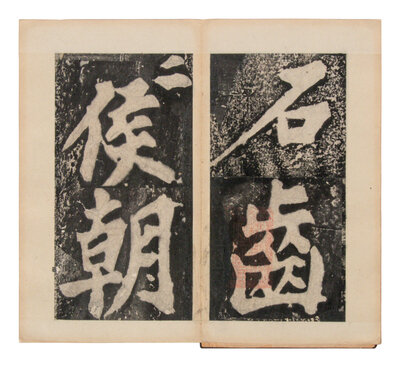 石齒
〻侯朝